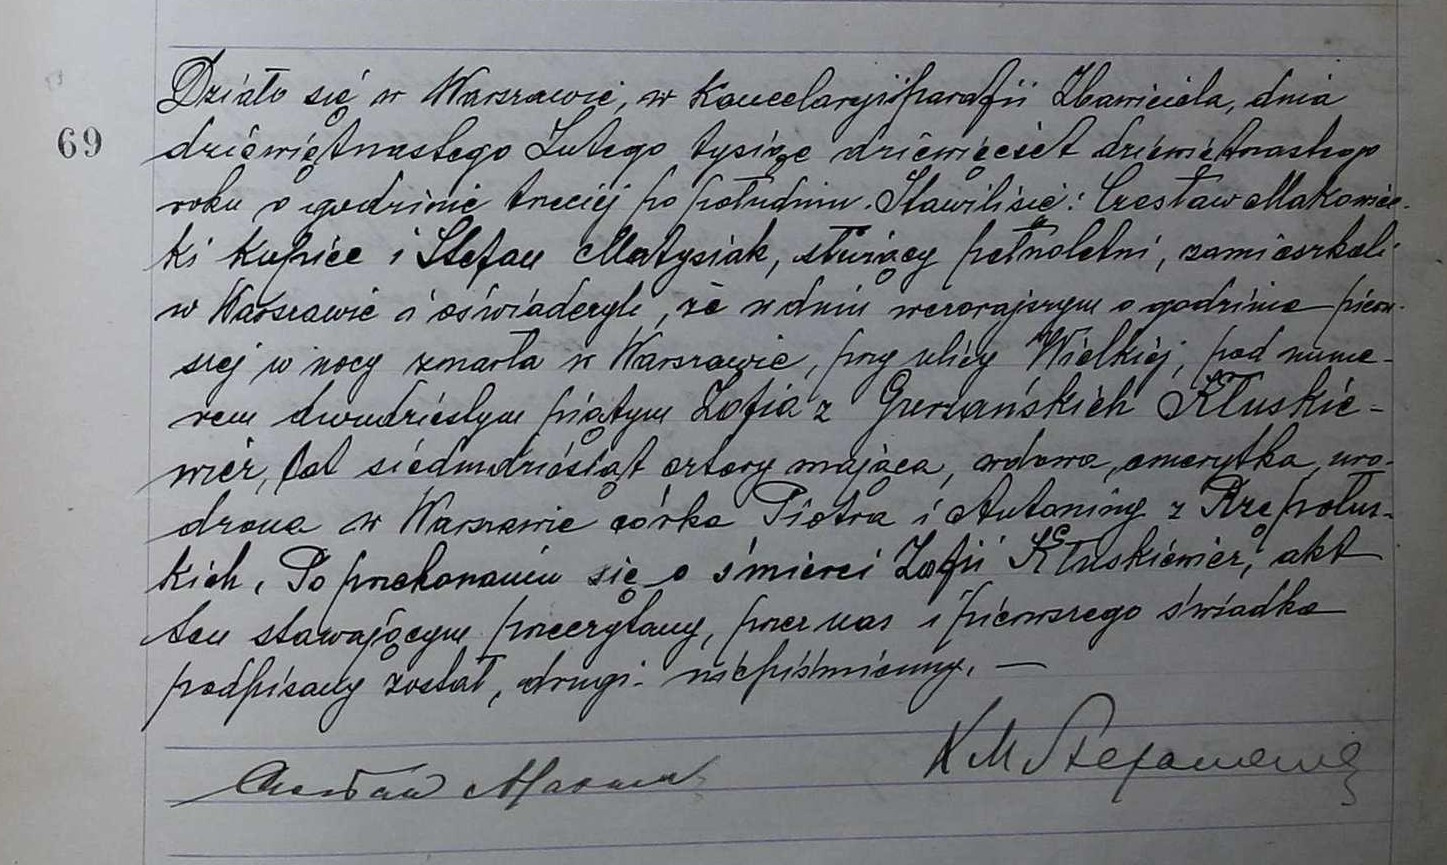 Działo się w Warszawie, w Kancelaryi parafii Zbawiciela, dnia
69
dziewiętnastego Lutego tysiąc dziewięćset dziewiętnastego
roku o godzinie trzeciej po południu. Stawili się: Czesław Makowiec-
ki kupiec i Stefan Matysiak, służący pełnoletni, zamieszkali
w Warszawie i oświadczyli, że w dniu wczorajszym o godzinie pierw-
szej w nocy zmarła w Warszawie, przy ulicy Wielkiej, pod nume-
rem dwudziestym piątym Zofia z Kłuskie-
wicz, lat siedmdziesiąt cztery mająca, wdowa, emerytka, uro-
dzona w Warszawie córka Piotra i Antoniny z Rzepołus-
kich. Po przekonaniu się o śmierci Zofii Kłuskiewicz, akt
ten stawającym przeczytany, przez nas i pierwszego świadka
podpisany został, drugi niepiśmienny. —
Czesław
K M